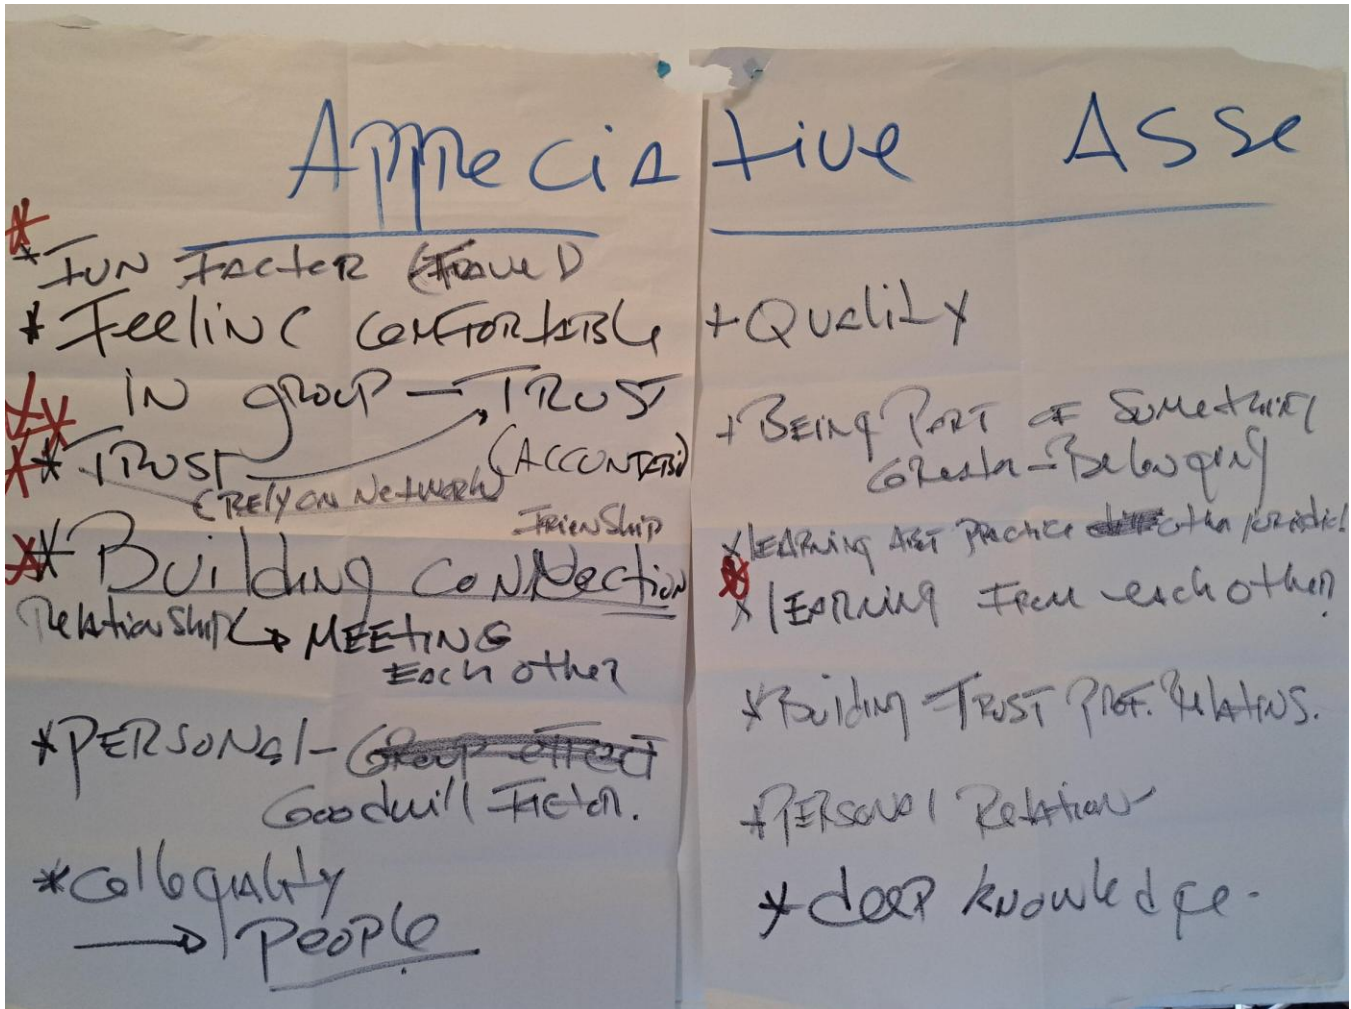 Appreciative Asse
* FUN FACTOR
* Feeling COMFORTABLE
IN GROUP - TRUST
* TRUST
(RELY ON NetWORK)
Frienship
* Building CoNNection
Relationship → MEETING
Each other
* PERSONAl -
Goodwill Factor.
* Collequality
→ People
+ Quality
+ BEING PART OF SOMETHING
Greater - Belonging
* LEARNING PRACTICE other
* LEARNING FROM each other
* Building TRUST PROF. Relatins.
+ PERSONAl Relation
* deep knowledge.